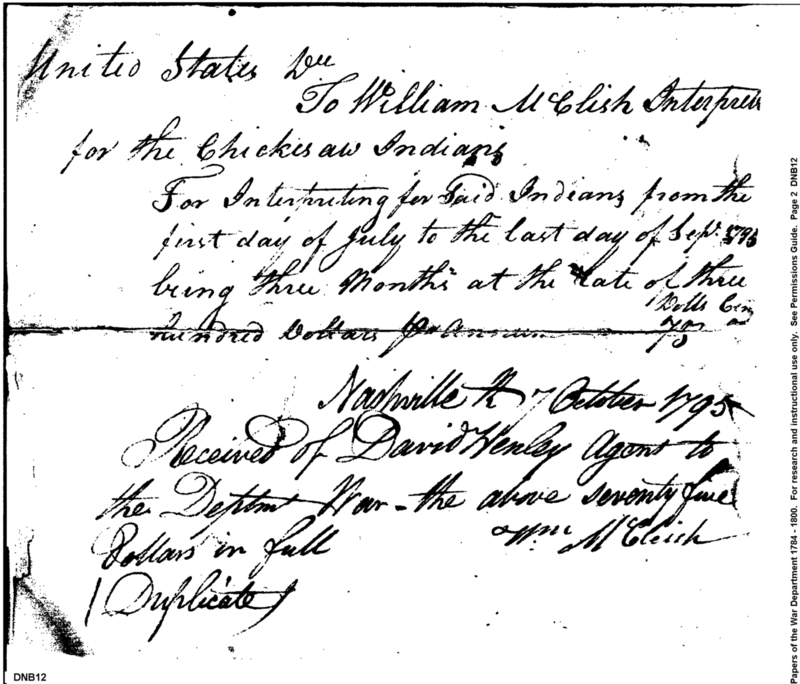 United States Dr
To William McClish Interpreter
for the Chickesaw Indians
For Interpreting for Said Indians from the
first day of July to the last day of Sepr. 1795
being three Months at the rate of three
Dolls Cen
hundred Dollars pr Annum 75
Nashville 7 October 1795
Received of David Henley Agent to
the Deptmt War - the above seventy five
Dollars in full Wm McClish
(Duplicate)
DNB12
Papers of the War Department 1784 - 1800. For research and instructional use only. See Permissions Guide. Page 2 DNB12